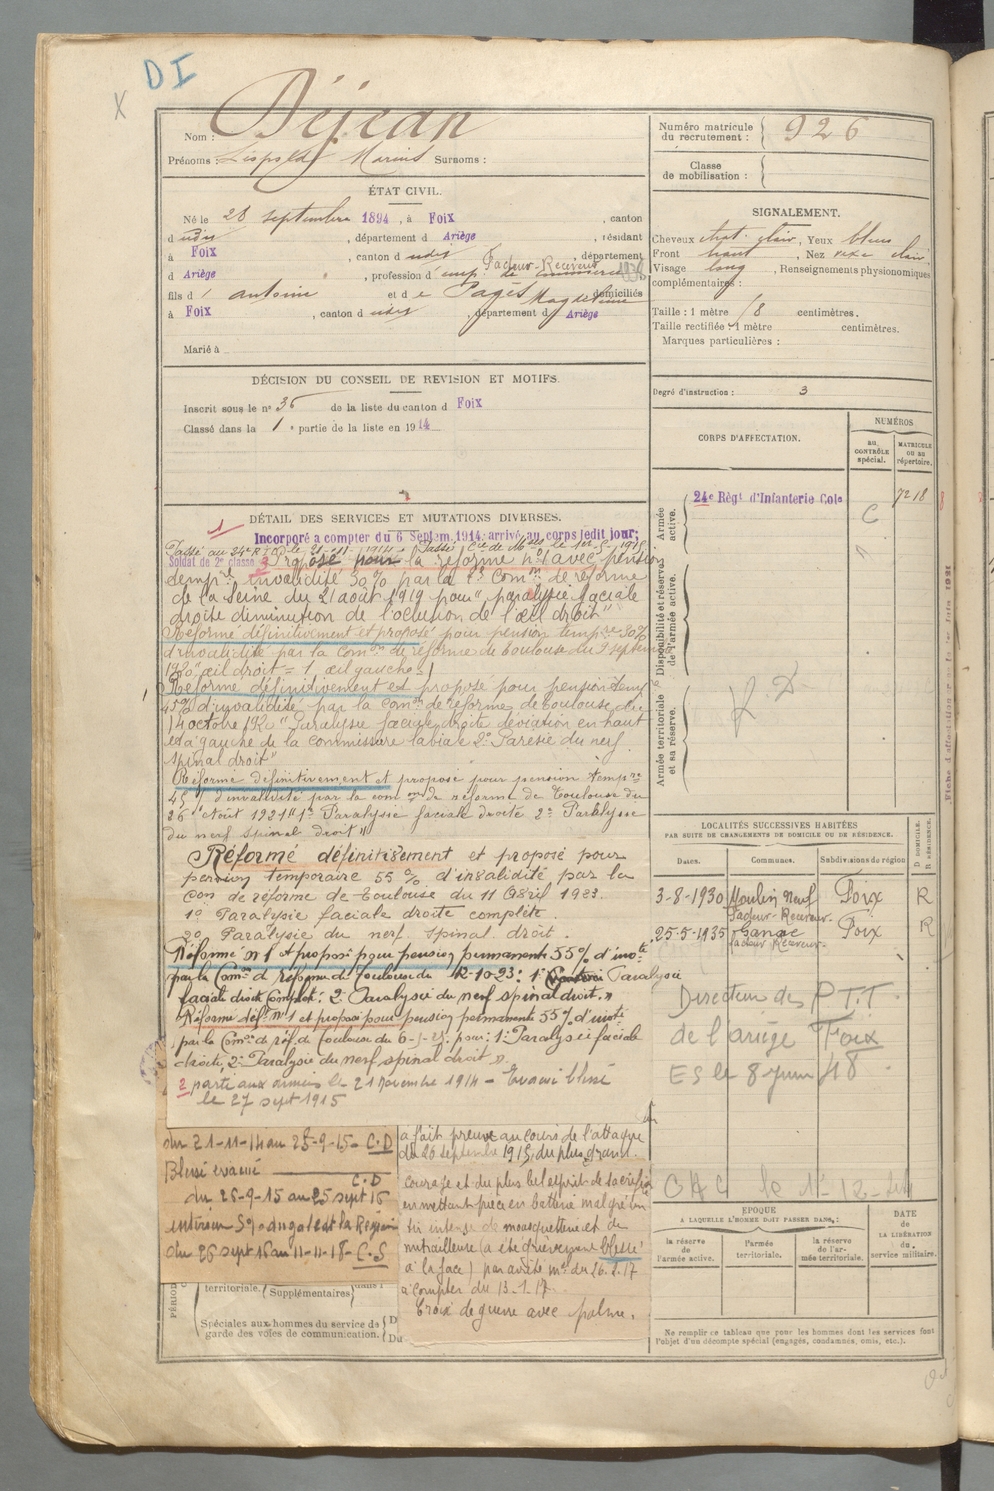 D I
X
Nom : Déjean
Prénoms : Léopold Marius Surnoms :
ÉTAT CIVIL.
Né le 28 septembre 1894, à Foix, canton
d udit, département d Ariège, résidant
à Foix, canton d udit, département
Facteur-Receveur 1936
d Ariège, profession d emp. de commerce
fils d' antoine et d e Pagès Magdeleine domiciliés
à Foix, canton d udit, département d Ariège
Marié à
DÉCISION DU CONSEIL DE REVISION ET MOTIFS.
Inscrit sous le n° 36 de la liste du canton d Foix
Classé dans la 1 e partie de la liste en 1914
DÉTAIL DES SERVICES ET MUTATIONS DIVERSES.
1 Incorporé a compter du 6 Septem 1914, arrivé au corps ledit jour;
Passé au 24e R I C le 21-11-1914 Passé Cie de Mses le 1er-5-1915
Soldat de 2e classe 3 Proposé pour la réforme n° 1 avec pension
temp.re invalidité 30% par la Com.on de réforme
de la Seine du 21 août 1919 pour " paralysie faciale
droite diminution de l'oclusion de l'œil droit"
Réforme définitivement et proposé pour pension temp.re 30%
d'invalidité par la Com.on de réforme de Toulouse du 9 septem
1920 " œil droit = 1 œil gauche = 1
Réforme définitivement et proposé pour pension temp
45% d'invalidité par la Com.on de réforme de Toulouse du
14 octobre 1920 " Paralysie faciale droite déviation en haut
et à gauche de la commissure labiale 2° Parésie du nerf
spinal droit"
Réforme définitivement et proposé pour pension temp.re
45% d'invalidité par la com.on de réforme de Toulouse du
26 Août 1921 "1° Paralysie faciale droite 2° Paralysie
du nerf spinal droit"
Réformé définitivement et proposé pour
pension temporaire 55% d'invalidité par la
Con de réforme de Toulouse du 11 Avril 1923.
1° Paralysie faciale droite complète.
2° Paralysie du nerf spinal droit.
Réformé n° 1 et proposé pour pension permanente 55% d'invté
par la Com.on d réforme de Toulouse du 12-10-23: 1° Paralysie
faciale droite complète: 2° Paralysie du nerf spinal droit."
Réformé déf.nt n° 1 et proposé pour pension permanente 55% d'invté
par la Com.on de réf. de Toulouse du 6-1-25: pour: 1° Paralysie faciale
droite, 2° Paralysie du nerf spinal droit".
2 parti aux armées le 21 novembre 1914 - Evacué blessé
le 27 sept 1915
du 21-11-14 au 25-9-15- C.D
Blessé évacué C.D
du 26-9-15 au 25 sept 16
intérieur
du 26 sept 16 au 11-11-18- C.S
a fait preuve au cours de l'attaque
du 26 septembre 1915, du plus grand
courage et du plus bel esprit de sacrifice
en mettant pièce en batterie malgré un
tir intense de mousqueterie et de
mitrailleuse (a été grièvement blessé
à la face) par arrêté m.el du 26.2.17
à compter du 13.1.17.
Croix de guerre avec palme.
PÉRIOD
territoriale. (Supplémentaires)
Spéciales aux hommes du service de
garde des voies de communication. D
Du
Numéro matricule
du recrutement : 926
Classe
de mobilisation :
SIGNALEMENT.
Cheveux chat. clair, Yeux bleus
Front haut, Nez clair
Visage long, Renseignements physionomiques
complémentaires :
Taille : 1 mètre 78 centimètres.
Taille rectifiée 1 mètre centimètres.
Marques particulières :
Degré d'instruction : 3
CORPS D'AFFECTATION.
NUMÉROS
AU CONTRÔLE spécial.
MATRICULE OU AU répertoire.
Armée active.
24e Régt d'Infanterie Cole
7218
C
Disponibilité et réserve de l'armée active.
Armée territoriale et sa réserve.
R.D
LOCALITÉS SUCCESSIVES HABITÉES
PAR SUITE DE CHANGEMENTS DE DOMICILE OU DE RÉSIDENCE.
Dates. Communes. Subdivisions de région
D DOMICILE. R RÉSIDENCE.
3-8-1930 Moulin Neuf Foix R
Facteur-Receveur.
25-5-1935 Ganac Foix R
facteur Receveur-
Directeur des P.T.T.
de l'ariège Foix
ES le 8 juin 48
le 1-12-44
EPOQUE
A LAQUELLE L'HOMME DOIT PASSER DANS :
la réserve de l'armée active.
l'armée territoriale.
la réserve de l'armée territoriale.
DATE de LA LIBÉRATION du service militaire.
Ne remplir ce tableau que pour les hommes dont les services font
l'objet d'un décompte spécial (engagés, condamnés, omis, etc.).